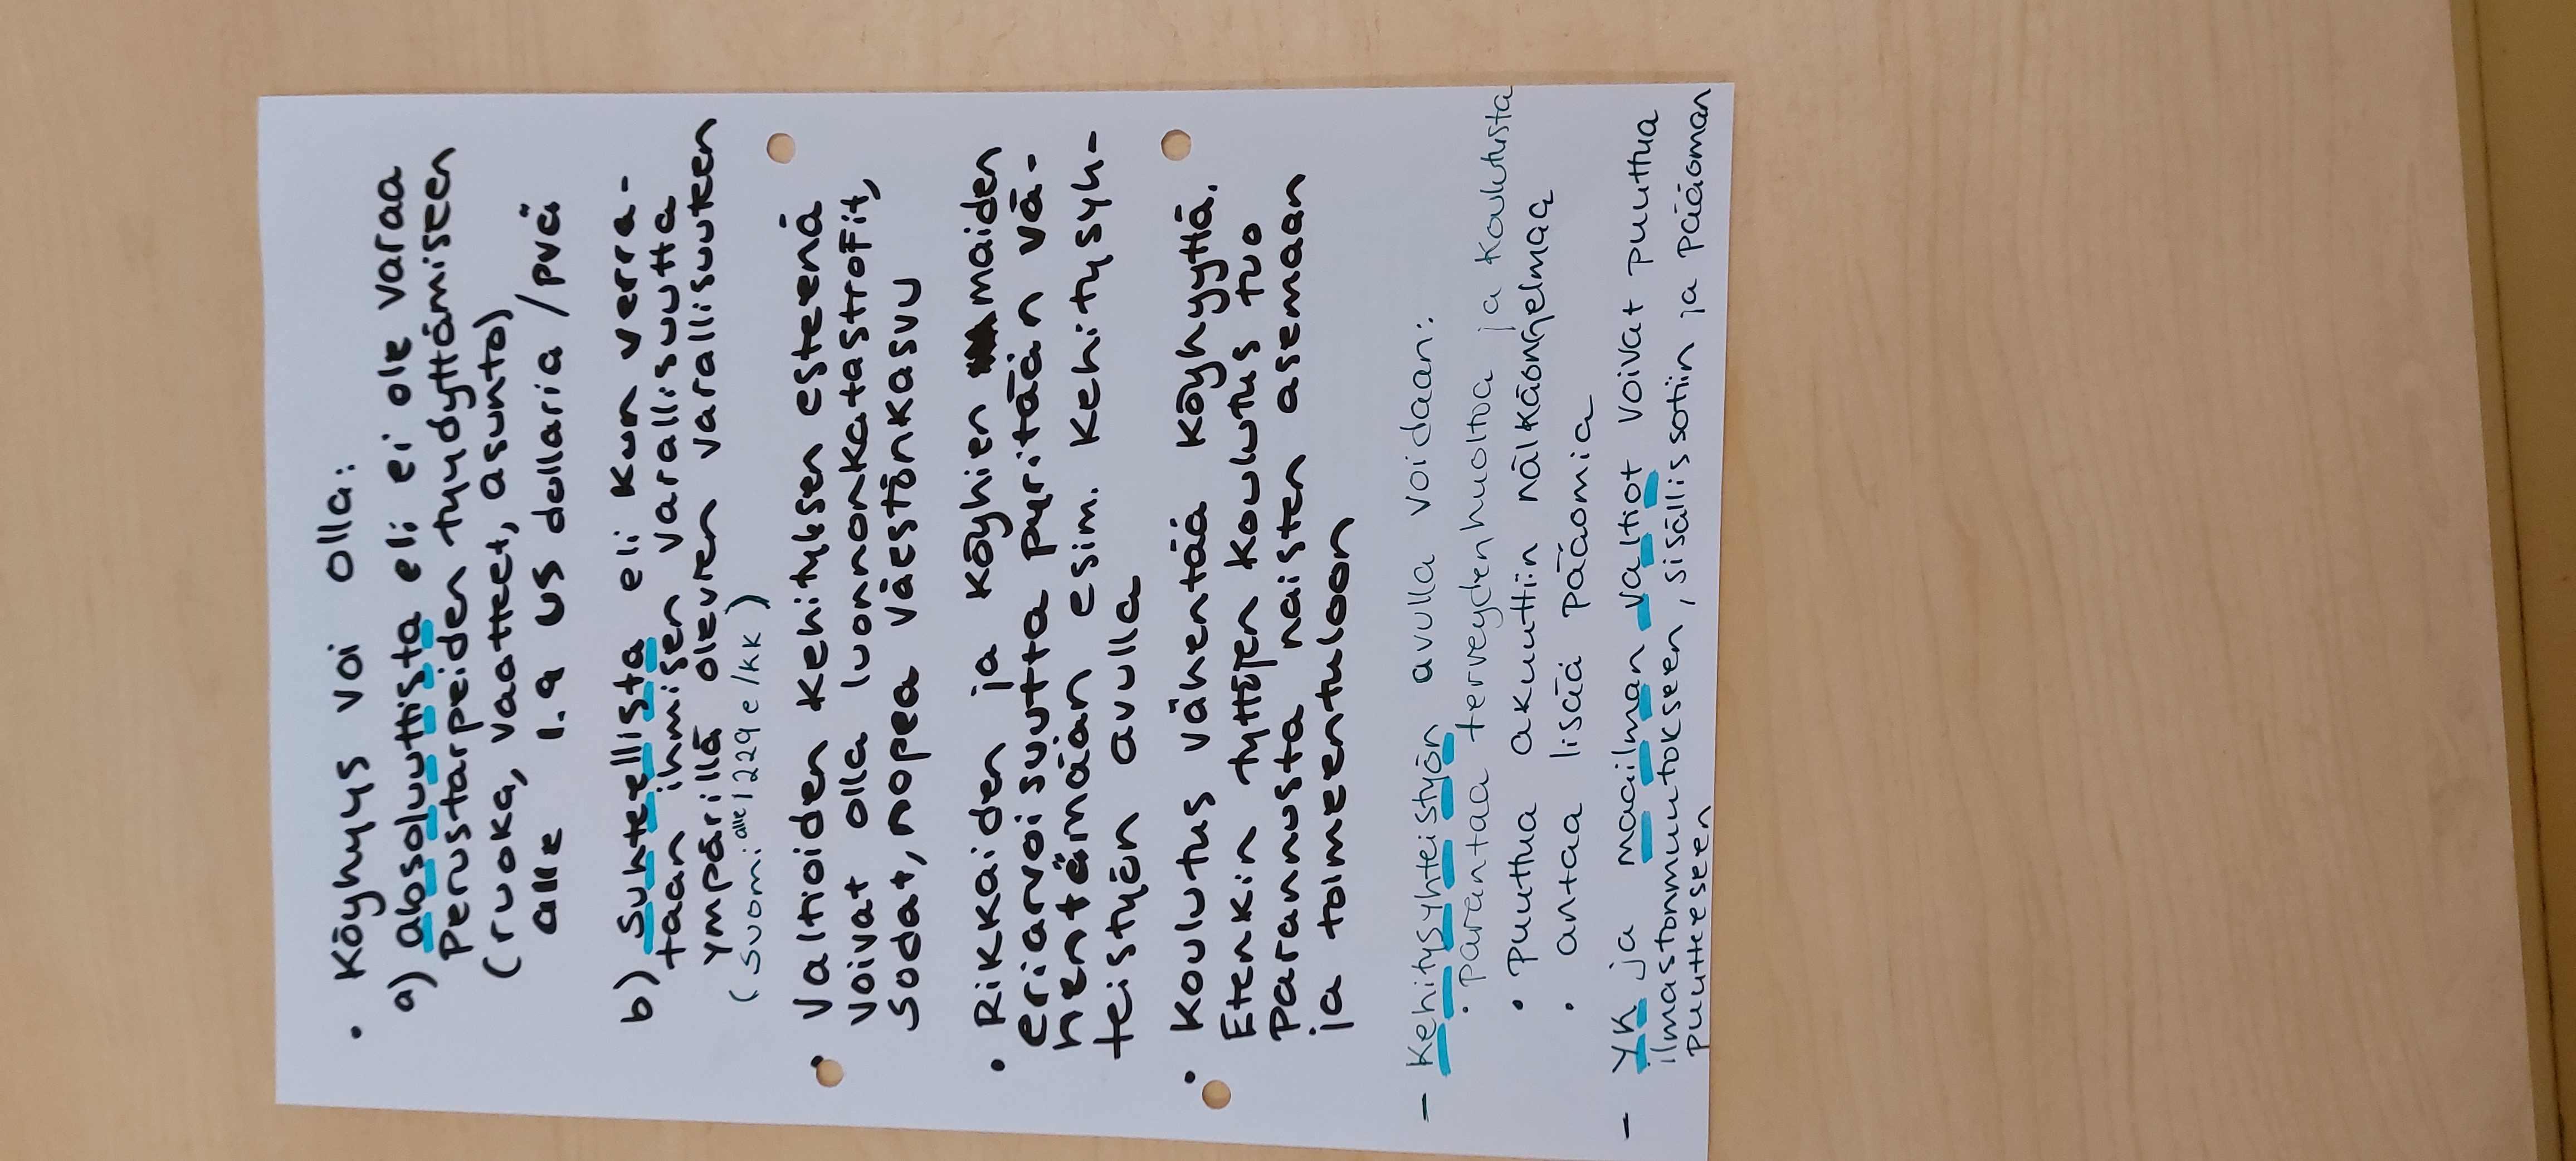 • Köyhyys voi olla:
a) absoluuttista eli ei ole varaa
perustarpeiden tyydyttämiseen
(ruoka, vaatteet, asunto)
alle 1.9 US dollaria/pvä
b) suhteellista eli kun verra-
taan ihmisen varallisuutta
ympärillä olevien varallisuuteen
(Suomi alle 1229 e/kk)
• Valtioiden kehityksen esteenä
voivat olla luonnonkatastrofit,
sodat, nopea väestönkasvu
• Rikkaiden ja köyhien maiden
eriarvoisuutta pyritään vä-
hentämään esim. kehitysyh-
teistyön avulla
• Koulutus vähentää köyhyyttä.
Etenkin tyttöjen koulutus tuo
parannusta naisten asemaan
ja toimeentuloon
- Kehitysyhteistyön avulla voidaan:
• parantaa terveydenhuoltoa ja koulutusta
• puuttua akuuttiin nälkäongelmaa
• antaa lisää pääomia
- YK ja maailman valtiot voivat puuttua
ilmastonmuutokseen, sisällissotiin ja pääoman
puutteeseen